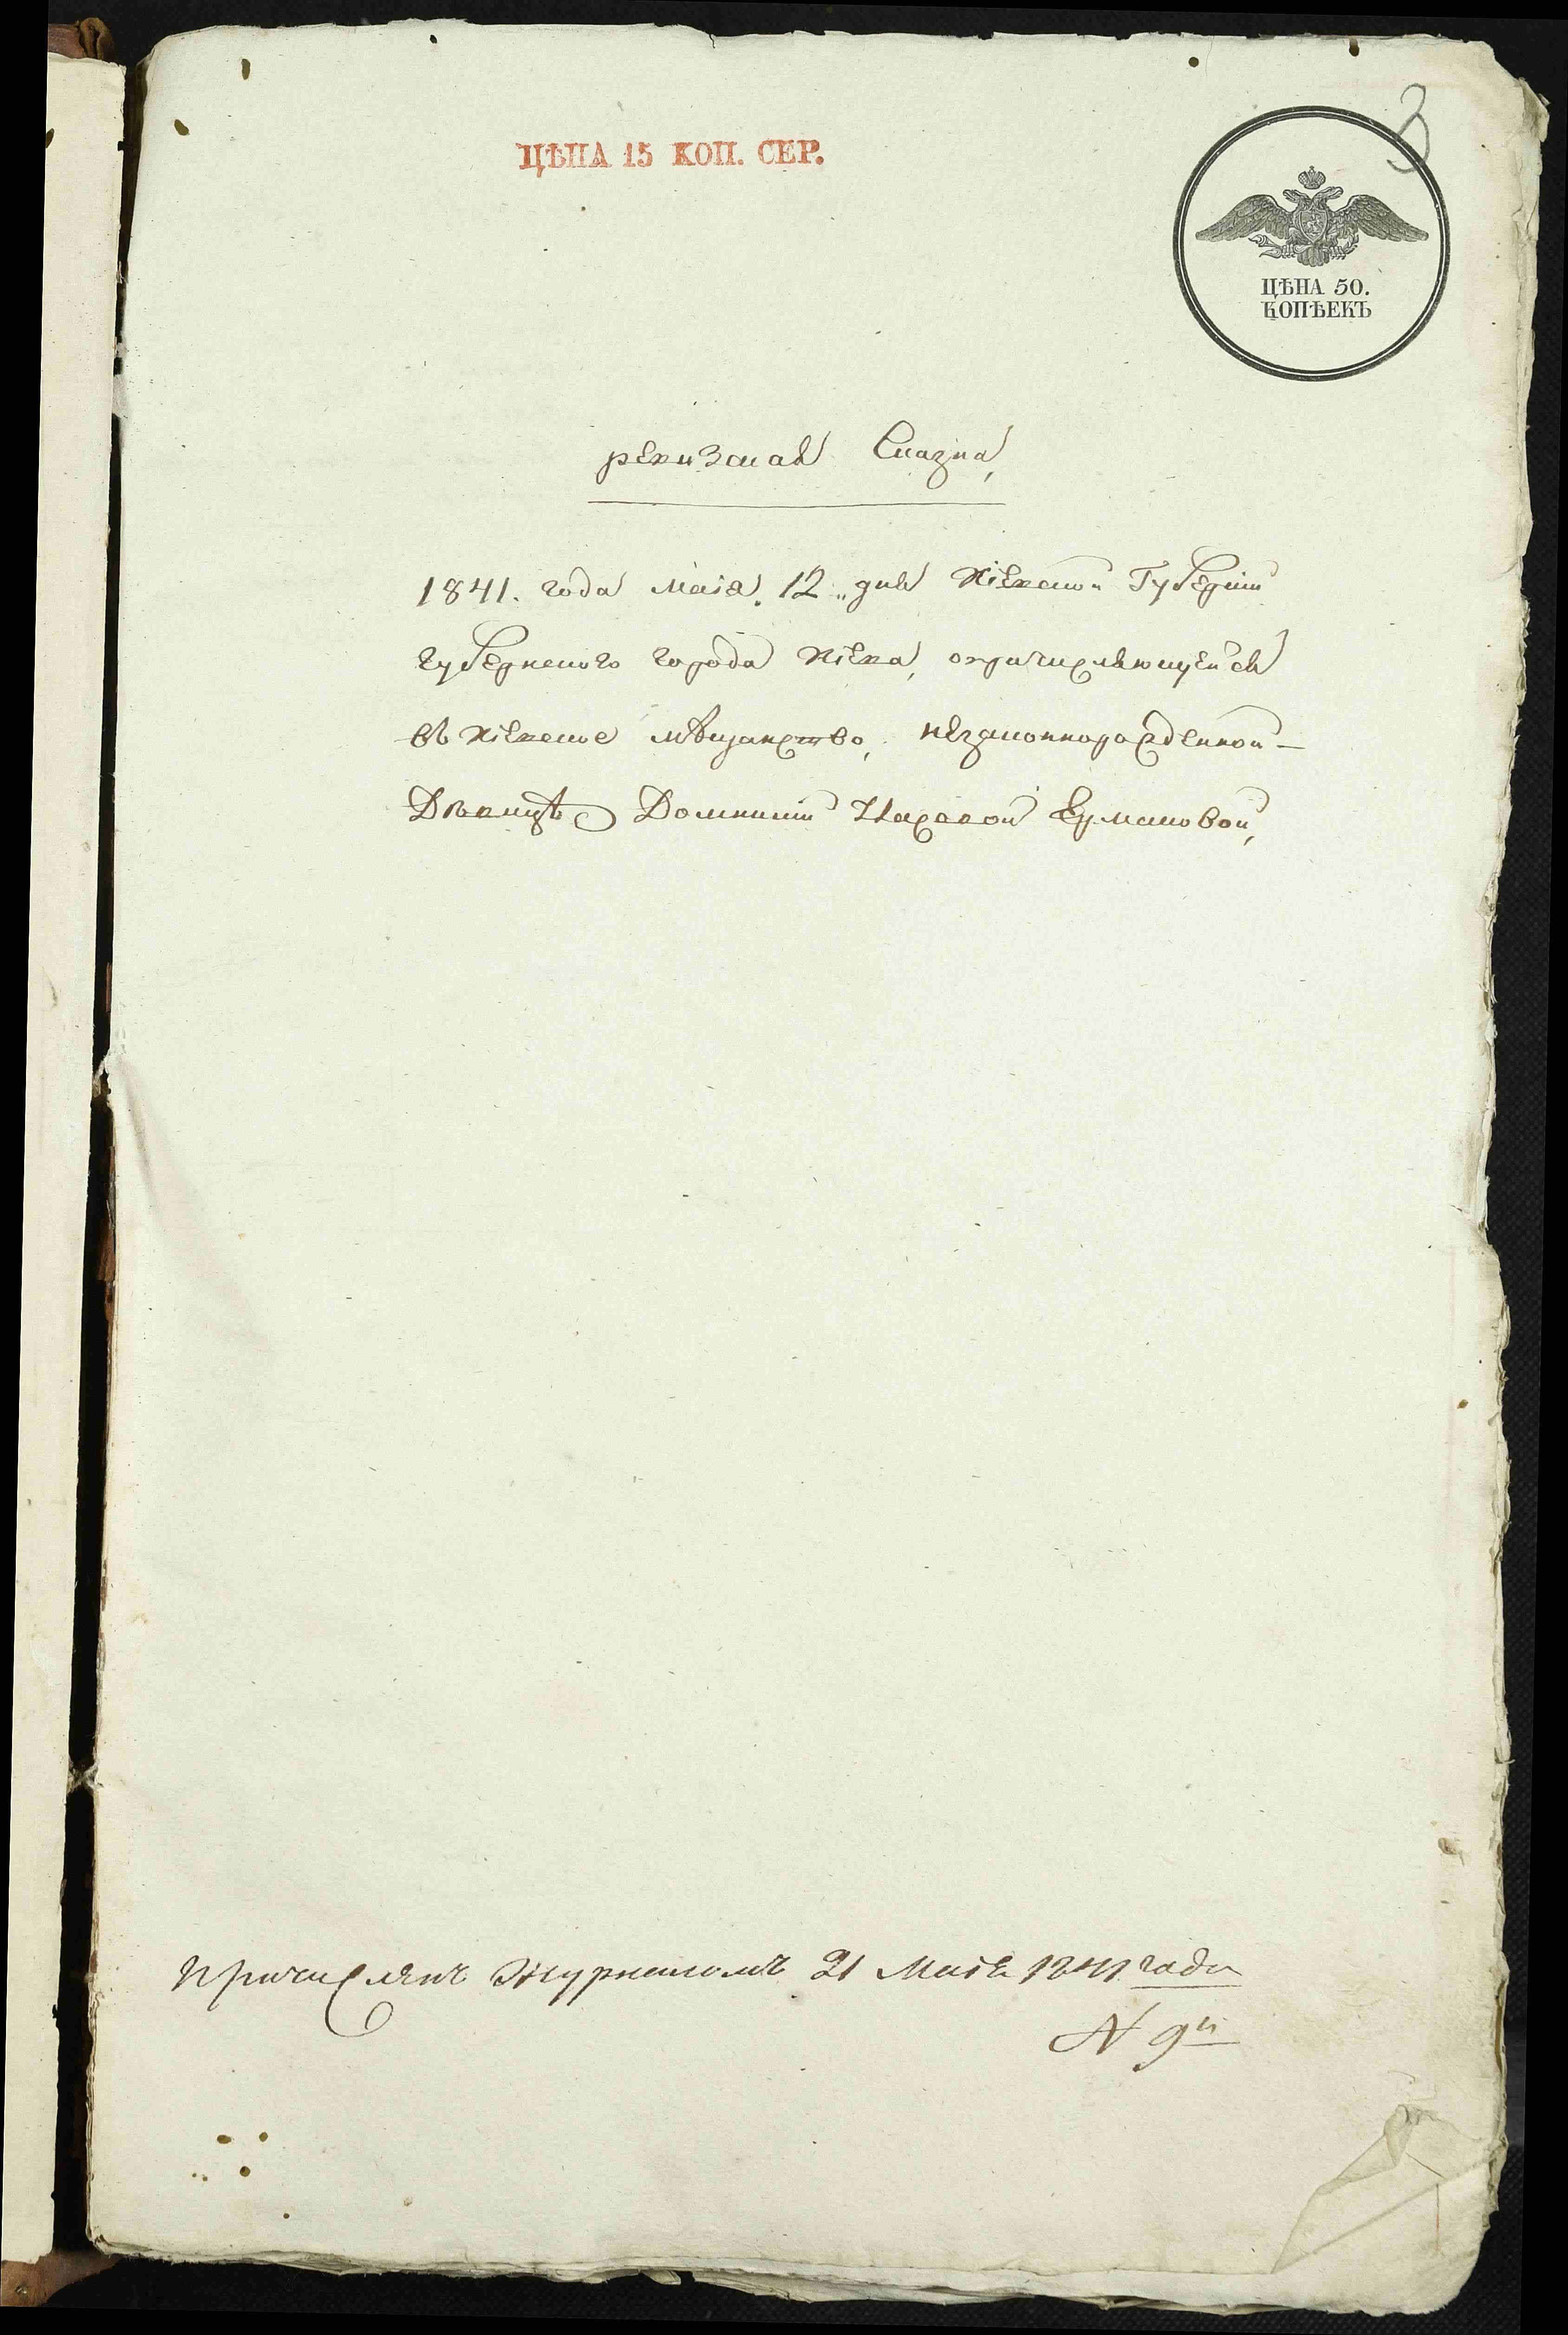 3
ЦѢНА 15 КОП. СЕР.
ЦѢНА 50.
КОПѢЕКЪ
ревизская Сказка,
1841. года Маія. 12 „ дня Кіевской Губерніи
губернскаго города Кіева, опричисляющейся
въ Кіевское мѣщанство, незаконнорожденной
Дѣвицѣ Домникіи Ермаковой,
Причислян Журналомъ 21 Маія 1841 года
N 9й